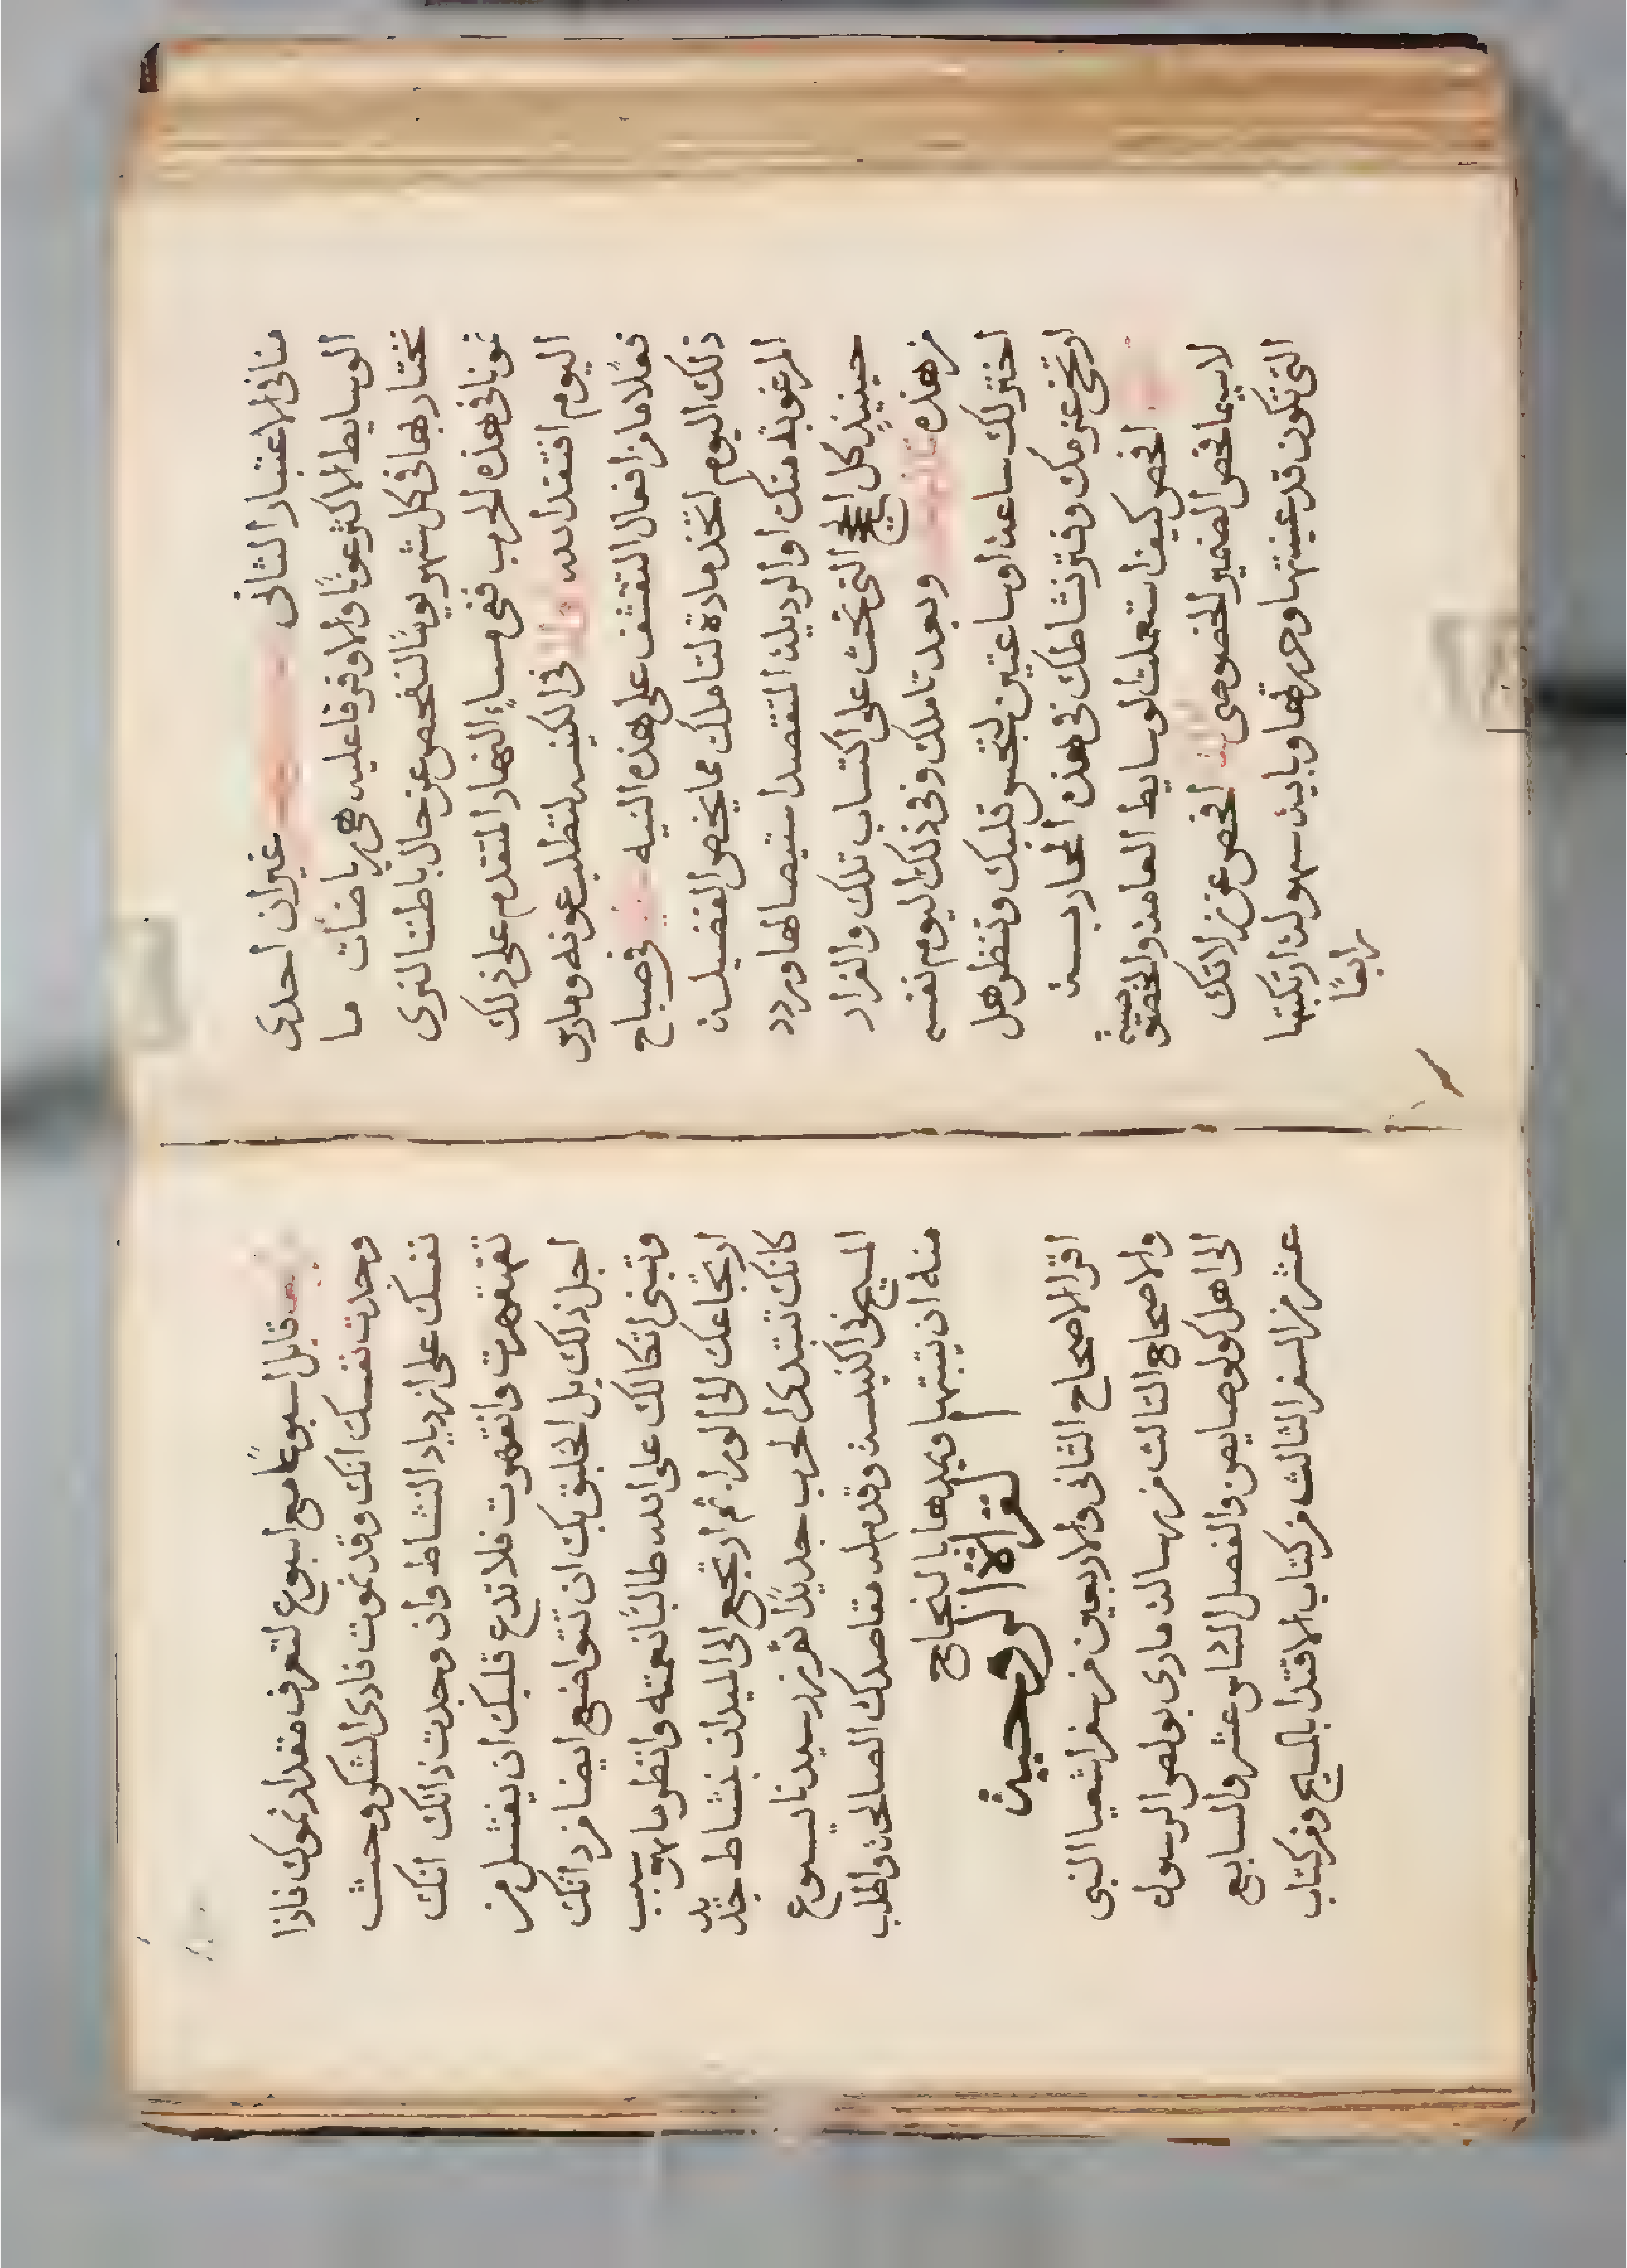 منافى الاعتبار الثانى غيران احدى
الوسايط الاكثر عونًا والاوفر فاعليه هى رياضات ما
نختار بها فى كل شهر يومًا لنفحص عن حال باطننا لنرى
نمونا فى هذه الحرب ففى مساءِ النهار المتقدم على ذلك
اليوم افتقد الله فى الكنيسه لتطلب عونه ومارس
فعلًا ما من افعال التقشف على هذه النيه فى صباح
ذلك اليوم اتخذ مادة لتاملك مما يخص الفضيلة
المرغوبة منك او الرديلة المتقصد استيصالها وردد
حينيذٍ كل الحجج التى تحث على اكتساب تلك والفرار
من هذه وبعد تاملك وفى ذلك اليوم نفسه
اختر لك ساعة او ساعتين لتجس قلبك وتنظر هل
ارتخى عزمك وفتر نشاطك فى هذه المحاربة
افحص كيف استعملت الوسايط العامة والخصوصية
لاسيما فحص الضمير الخصوصى افحص عن زلاتك
التى تكون قد عينتها وحررتها وباية سهولة ارتكبتها
رابعًا
قابل اسبوعًا مع اسبوع لتعرف مقدار نموك فاذا
وجدت نفسك انك وقد نموت فادى الشكر وحث
نفسك على ازدياد النشاط وان وجدت ذاتك انك
تقهقهرت وانقهرت فلا تدع قلبك ان يفشل من
اجل ذلك بل اخلق بك ان تتواضع ايضا من ذاتك
وتبنى اتكالك على الله طالبًا نعمته وانظر ما هو سبب
ارتجاعك الى الورا. ثم ارتجع الى الميدان بنشاط جديد
كانك تبتدى لحرب جديدًا تقرز سيدنا يسوع
المسيح فى الكنيسة وقدم له مقاصدك الصالحة واطلب
منه ان يثبتها ويمدها بالنجاح
القراة الروحية
اقرا الاصحاح الثانى والاربعين من سفر اشعيا النبى
والاصحاح الثالث من رسالة مارى بولص الرسول
الى اهل كولوصايص والفصل السادس عشر والسابع
عشر من السفر الثالث من كتاب الاقتدا بالمسيح ومن كتاب